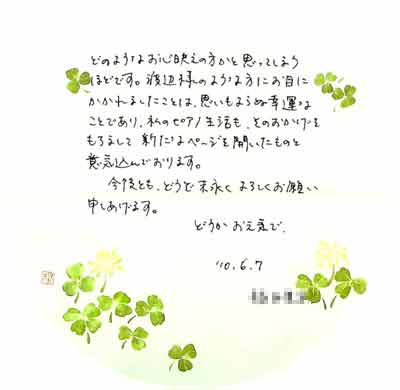 どのようなお心映えの方かと思ってしまう
ほどです。渡辺様のような方にお目に
かかれましたことは、思いもよらぬ幸運な
ことであり、私のピアノ生活も、そのおかげを
もちまして 新たなページを開いたものと
意気込んでおります。
今後とも、どうぞ末永く よろしくお願い
申しあげます。
どうか お元気で。
'10.6.7